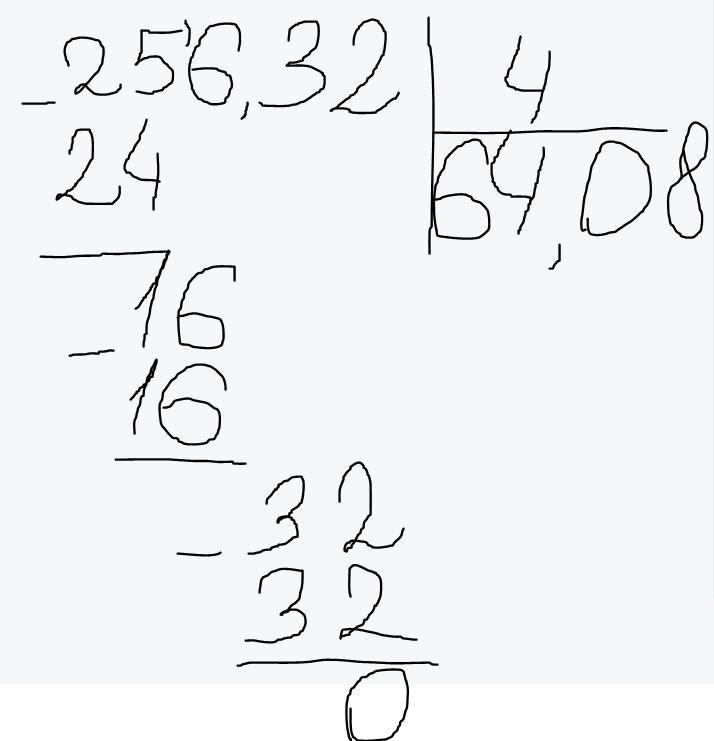 -256,32 | 4
24 | 64,08
-16
16
-32
32
0